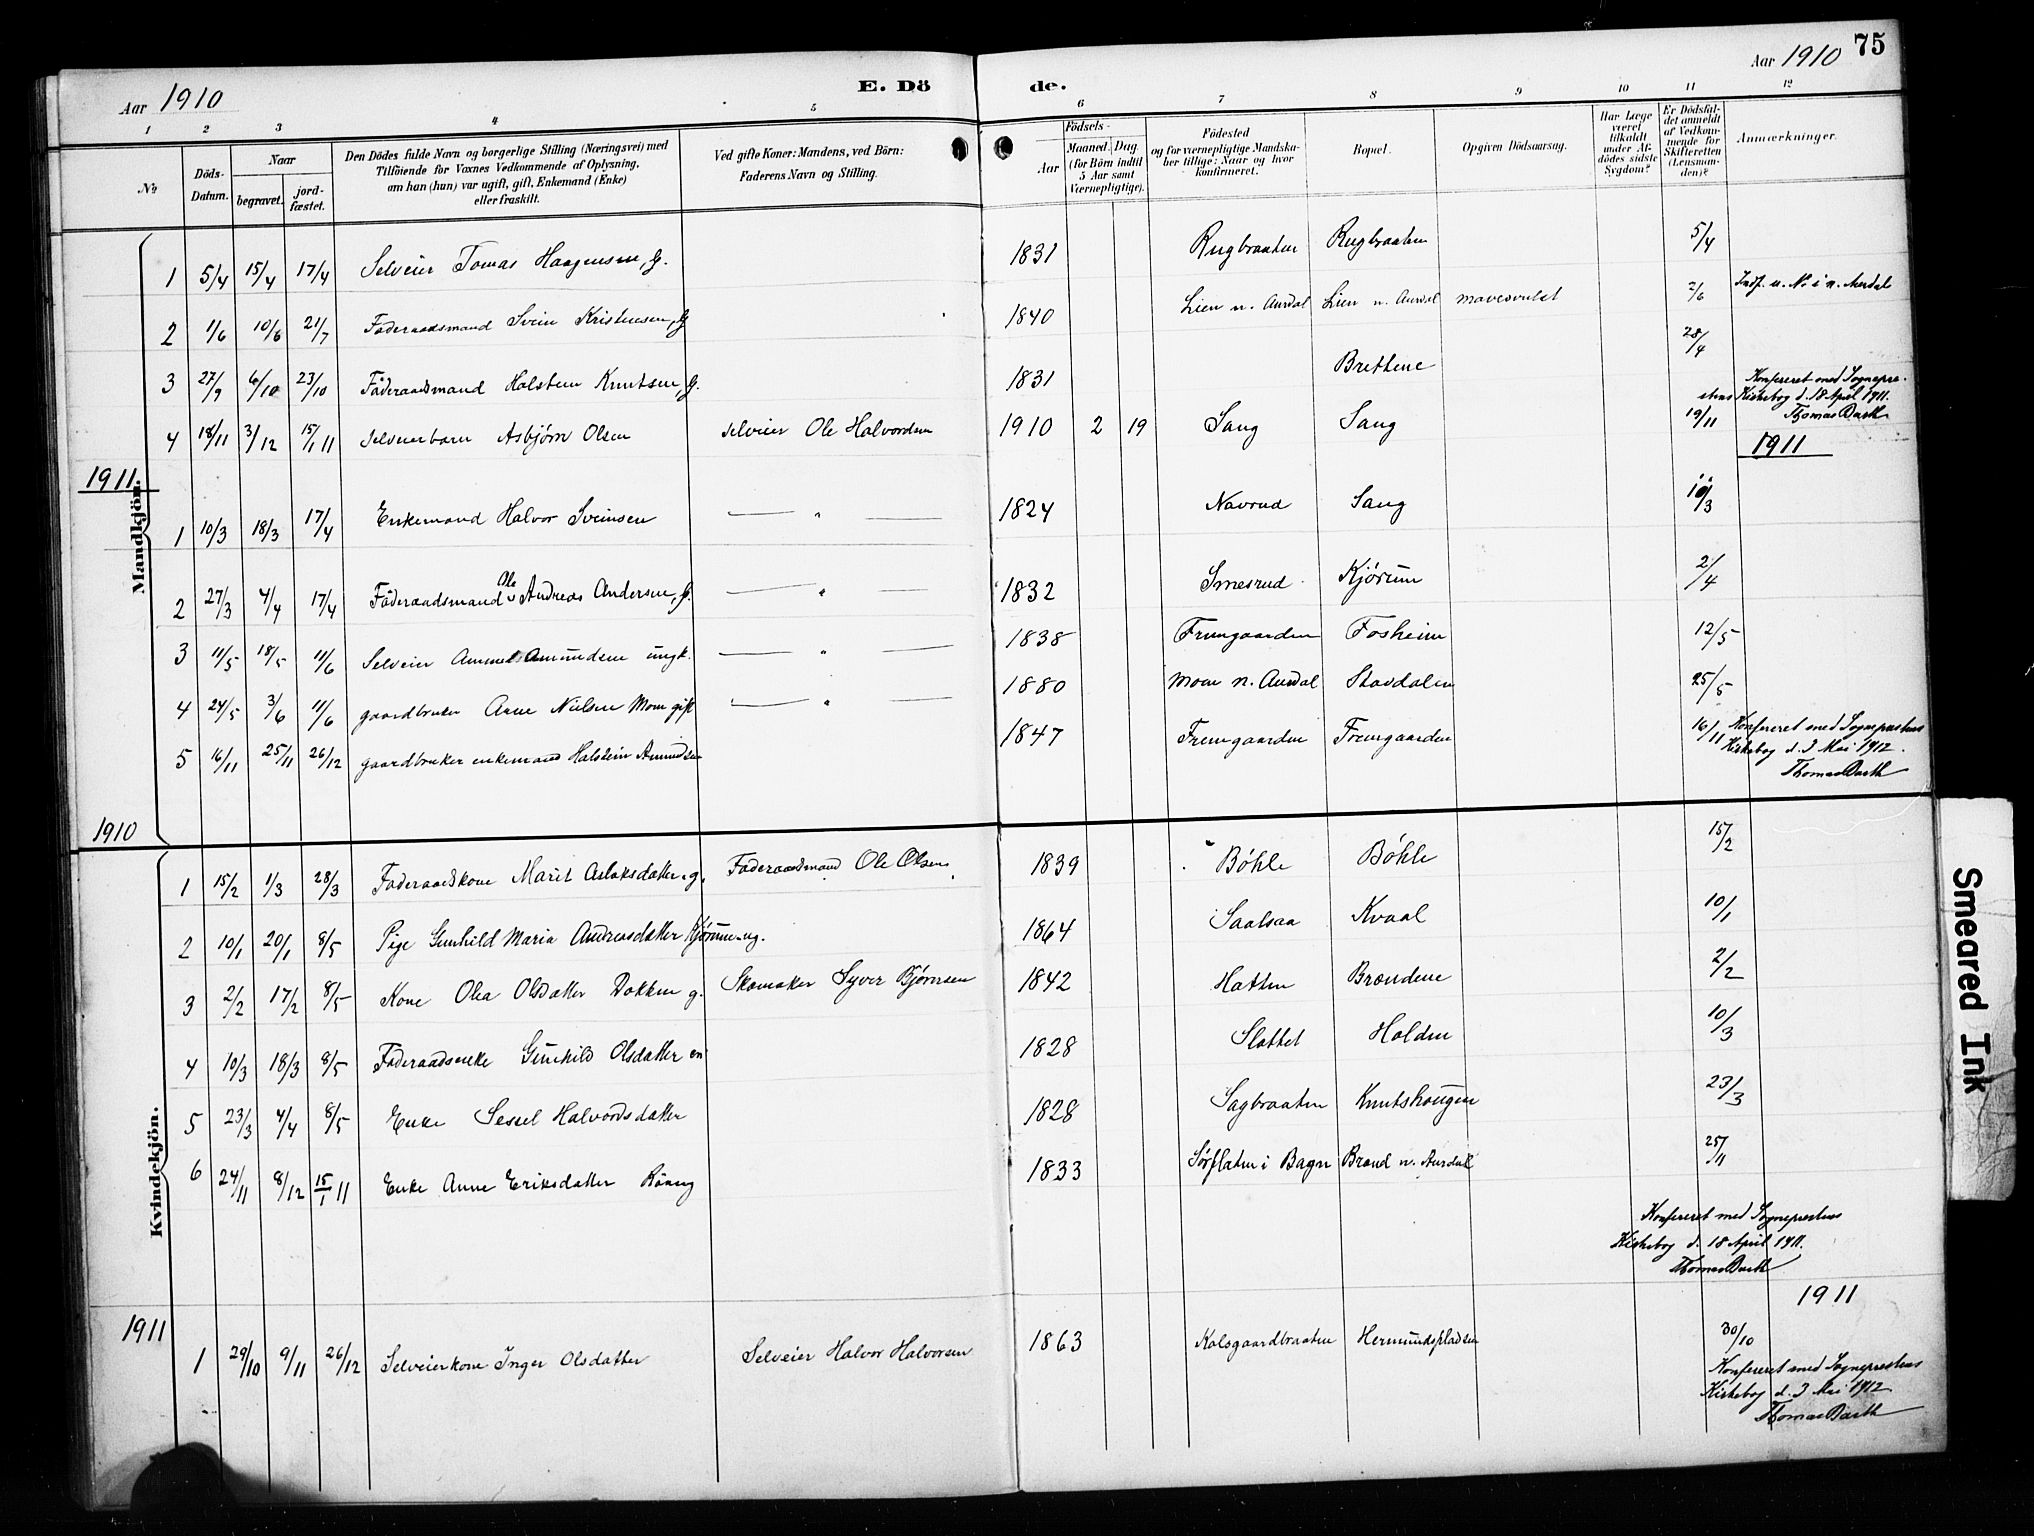 75
Aar 1910 E. Dö de. Aar 1910
1 2 3 4 5 6 7 8 9 10 11 12
No. Döds-Datum. Naar begravet. jord-fæstet. Den Dödes fulde Navn og borgerlige Stilling (Næringsvei) med Tilföiende for Voxnes Vedkommende af Oplysning, om han (hun) var ugift, gift, Enkemand (Enke) eller fraskilt. Ved gifte Koner: Mandens, ved Börn: Faderens Navn og Stilling. Födsels- Aar Maaned. Dag. (for Börn indtil 5 Aar samt Værnepligtige). Födested og for værnepligtige Mandskaber tillige: Naar og hvor konfirmeret. Bopæl. Opgiven Dödsaarsag. Har Læge været tilkaldt under Afdödes sidste Sygdom? Er Dödsfaldet anmeldt af Vedkommende for Skifteretten (Lensmanden)? Anmærkninger.
Mandkjön.
1 5/4 15/4 17/4 Selveier Tomas Haagensen, G. 1831 Rugbraaten Rugbraaten 5/4
2 1/6 10/6 21/7 Föderaadsmand Svein Kristensen, G 1840 Lien n. Aurdal Lien n. Aurdal mavesvulst 2/6 Indf. u. No. i n. Aurdal
3 27/9 6/10 23/10 Föderaadsmand Halstein Knutsen, G. 1831 Brettene 28/4
Konfereret med Sognepre-
stens Kirkebog d. 18 April 1911.
Thomas Barth
4 18/11 3/12 15/1 11 Selveierbarn Asbjørn Olsen Selveier Ole Halvordsen 1910 2 19 Sang Sang 19/11
1911 1911
1 10/3 18/3 17/4 Enkemand Halvor Sveinsen — " — 1824 Navrud Sang 10/3
2 27/3 4/4 17/4 Föderaadsmand Ole Andreas Andersen, G. — " — 1832 Smesrud Kjørum 2/4
3 11/5 18/5 11/6 Selveier Amund Amundsen ungk. — " — 1838 Fremgaarden Fosheim 12/5
4 24/5 3/6 11/6 gaardbruker Arne Nielsen Moen gift — " — 1880 Moen n. Aurdal Stavdalen 25/5
5 16/11 25/11 26/12 gaardbruker enkemand Halstein Amundsen 1847 Fremgaarden Fremgaarden 16/11
Konfereret med Sogneprestens
Kirkebog d. 3 Mai 1912.
Thomas Barth
1910
Kvindekjön.
1 15/2 1/3 28/3 Föderaadskone Marit Aslaksdatter. g. Föderaadsmand Ole Olsen 1839 Bøhle Bøhle 15/2
2 10/1 20/1 8/5 Pige Gunhild Maria Andreasdatter Kjørum ug. 1864 Saalsaa Kvaal 10/1
3 2/2 17/2 8/5 Kone Olea Olsdatter Dokken g. Skomaker Syver Bjørnsen 1842 Hatten Brændene 2/2
4 10/3 18/3 8/5 Föderaadsenke Gunhild Olsdatter en 1828 Slottet Holden 10/3
5 23/3 4/4 8/5 Enke Sessel Halvordsdatter 1828 Sagbraaten Knutshougen 23/3
6 24/11 8/12 15/1 11 Enke Anne Eriksdatter 1833 Sørflaten i Bagn Brænd n. Aurdal 25/11
Konfereret med Sogneprestens
Kirkebog d. 18 April 1911.
Thomas Barth
1911 1911
1 29/10 9/11 26/12 Selveierkone Inger Olsdatter Selveier Halvor Halvorsen 1863 Kolsgaardbraaten Hermundspladsen 30/10
Konfereret med Sogneprestens
Kirkebog d. 3 Mai 1912
Thomas Barth
Smeared Ink